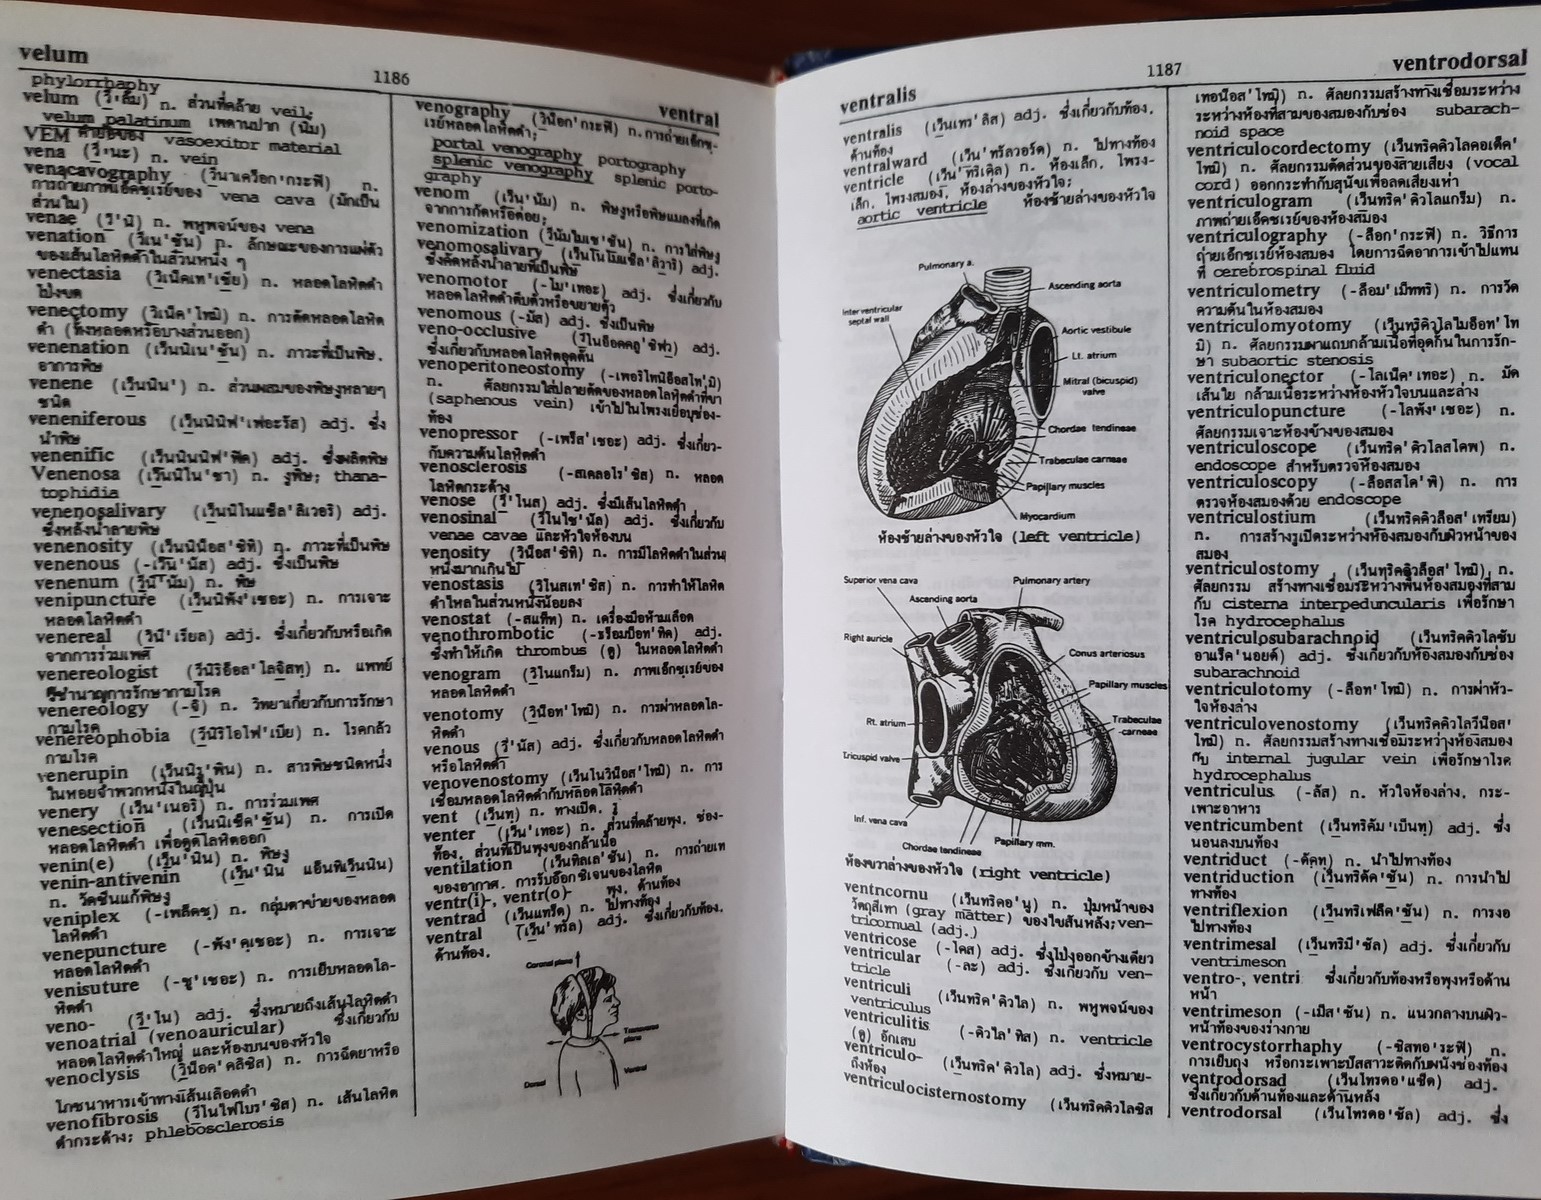 velum
1186
ventral
phylorrhaphy
velum (วี'ลัม) n. ส่วนที่คล้าย veil;
velum palatinum เพดานปาก (นิ่ม)
VEM คำย่อของ vasoexitor material
vena (วี'นะ) n. vein
venacavography (วีนาเควีอก'กระฟี) n.
การถ่ายภาพเอ็คซเรย์ของ vena cava (มักเป็น
ส่วนใน)
venae (วี'นี) n. พหูพจน์ของ vena
venation (วีเน'ชัน) n. ลักษณะของการแผ่ตัว
ของเส้นโลหิตดำในส่วนหนึ่ง ๆ
venectasia (วีเน็คเท'เซีย) n. หลอดโลหิตดำ
โป่งขด
venectomy (วีเน็ค'โทมี) n. การตัดหลอดโลหิต
ดำ (ทั้งหลอดหรือบางส่วนออก)
venenation (เว็นนิเน'ชัน) n. ภาวะที่เป็นพิษ,
อาการพิษ
venene (เว็นนีน') n. ส่วนผสมของพิษงูหลายๆ
ชนิด
veneniferous (เว็นนินิฟ'เฟอะรัส) adj. ซึ่ง
นำพิษ
venenific (เว็นนินนิฟ'ฟิค) adj. ซึ่งผลิตพิษ
Venenosa (เว็นนิโน'ซา) n. งูพิษ; thana-
tophidia
venenosalivary (เว็นนิโนแซ็ล'ลิเวอรี) adj.
ซึ่งหลั่งน้ำลายพิษ
venenosity (เว็นนินีอส'ซิที) n. ภาวะที่เป็นพิษ
venenous (-เว็น'นัส) adj. ซึ่งเป็นพิษ
venenum (วีนี'นัม) n. พิษ
venipuncture (เว็นนิพัง'เชอะ) n. การเจาะ
หลอดโลหิตดำ
venereal (วินี'เรียล) adj. ซึ่งเกี่ยวกับหรือเกิด
จากการร่วมเพศ
venereologist (วีนิรีอ็อล'โลจิสท) n. แพทย์
ชำนาญการรักษากามโรค
venereology (-จี) n. วิทยาเกี่ยวกับการรักษา
กามโรค
venereophobia (วีนิรีโอโฟ'เบีย) n. โรคกลัว
กามโรค
venerupin (เว็นนิรู'พิน) n. สารพิษชนิดหนึ่ง
ในหอยจำพวกหนึ่งในญี่ปุ่น
venery (เว็น'เนอรี) n. การร่วมเพศ
venesection (เว็นนิเซ็ค'ชัน) n. การเปิด
หลอดโลหิตดำ เพื่อดูดโลหิตออก
venin(e) (เว็น'นิน) n. พิษงู
venin-antivenin (เว็น'นิน แอ็นทิเว็นนิน)
n. วัคซีนแก้พิษงู
veniplex (-เพล็คซ) n. กลุ่มตาข่ายของหลอด
โลหิตดำ
venepuncture (-พัง'คเชอะ) n. การเจาะ
หลอดโลหิตดำ
venisuture (-ซู'เชอะ) n. การเย็บหลอดโล-
หิตดำ
veno- (วี'โน) adj. ซึ่งหมายถึงเส้นโลหิตดำ
venoatrial (venoauricular) ซึ่งเกี่ยวกับ
หลอดโลหิตดำใหญ่ และห้องบนของหัวใจ
venoclysis (วีน็อค'คลิซิส) n. การฉีดยาหรือ
โภชนาหารเข้าทางเส้นเลือดดำ
venofibrosis (วีโนไฟโบร'ซิส) n. เส้นโลหิต
ดำกระด้าง; phlebosclerosis
venography (วีน็อก'กระฟี) n. การถ่ายเอ็กซ-
เรย์หลอดโลหิตดำ;
portal venography portography
splenic venography splenic porto-
graphy
venom (เว็น'นัม) n. พิษงูหรือพิษแมลงที่เกิด
จากการกัดหรือต่อย;
venomization (วีนัมไมเซ'ชัน) n. การใส่พิษงู
venomosalivary (เว็นโนโมแซ็ล'ลิวารี) adj.
ซึ่งคัดหลั่งน้ำลายที่เป็นพิษ
venomotor (-โม'เทอะ) adj. ซึ่งเกี่ยวกับ
หลอดโลหิตดำตีบตัวหรือขยายตัว
venomous (-มัส) adj. ซึ่งเป็นพิษ
veno-occlusive (วีโนอ็อคคลู'ซิฟว) adj.
ซึ่งเกี่ยวกับหลอดโลหิตอุดตัน
venoperitoneostomy (-เพอริโทนิอ็อสโท'มี)
n. ศัลยกรรมใส่ปลายตัดของหลอดโลหิตดำที่ขา
(saphenous vein) เข้าไปในโพรงเยื่อบุช่อง-
ท้อง
venopressor (-เพร็ส'เซอะ) adj. ซึ่งเกี่ยว-
กับความดันโลหิตดำ
venosclerosis (-สเคลอโร'ซิส) n. หลอด
โลหิตกระด้าง
venose (วี'โนส) adj. ซึ่งมีเส้นโลหิตดำ
venosinal (วีโนไซ'นัล) adj. ซึ่งเกี่ยวกับ
venae cavae และหัวใจห้องบน
venosity (วีน็อส'ซิที) n. การมีโลหิตดำในส่วน
หนึ่งมากเกินไป
venostasis (วีโนสเท'ซิส) n. การทำให้โลหิต
ดำไหลในส่วนหนึ่งน้อยลง
venostat (-สแท็ท) n. เครื่องมือห้ามเลือด
venothrombotic (-ธร็อมบ็อท'ทิค) adj.
ซึ่งทำให้เกิด thrombus (ดู) ในหลอดโลหิตดำ
venogram (วีโนแกร็ม) n. ภาพเอ็กซเรย์ของ
หลอดโลหิตดำ
venotomy (วีน็อท'โทมี) n. การผ่าหลอดโล-
หิตดำ
venous (วี'นัส) adj. ซึ่งเกี่ยวกับหลอดโลหิตดำ
หรือโลหิตดำ
venovenostomy (เว็นโนวีน็อส'โทมี) n. การ
เชื่อมหลอดโลหิตดำกับหลอดโลหิตดำ
vent (เว็นท) n. ทางเปิด, รู
venter (เว็น'เทอะ) n. ส่วนที่คล้ายพุง, ช่อง-
ท้อง, ส่วนที่เป็นพุงของกล้ามเนื้อ
ventilation (เว็นทิลเล'ชัน) n. การถ่ายเท
ของอากาศ, การรับอ๊อกซิเจนของโลหิต
ventr(i)-, ventr(o)- พุง, ด้านท้อง
ventrad (เว็นแทร็ด) n. ไปทางท้อง
ventral (เว็น'ทรัล) adj. ซึ่งเกี่ยวกับท้อง,
ด้านท้อง.
Coronal plane
Transverse
plane
Dorsal
Ventral
ventralis
1187
ventrodorsal
ventralis (เว็นเทร'ลิส) adj. ซึ่งเกี่ยวกับท้อง,
ด้านท้อง
ventralward (เว็น'ทรัลวอร์ด) n. ไปทางท้อง
ventricle (เว็น'ทริเคิล) n. ห้องเล็ก, โพรง-
เล็ก, โพรงสมอง, ห้องล่างของหัวใจ;
aortic ventricle ห้องซ้ายล่างของหัวใจ
Pulmonary a.
Ascending aorta
Interventricular
septal wall
Aortic vestibule
Lt. atrium
Mitral (bicuspid)
valve
Chordae tendineae
Trabeculae carneae
Papillary muscles
Myocardium
ห้องซ้ายล่างของหัวใจ (left ventricle)
Superior vena cava
Pulmonary artery
Ascending aorta
Right auricle
Conus arteriosus
Papillary muscles
Rt. atrium
Trabeculae
-carneae
Tricuspid valve
Inf. vena cava
Chordae tendineae
Papillary mm.
ห้องขวาล่างของหัวใจ (right ventricle)
ventricornu (เว็นทริคอ'นู) n. ปุ่มหน้าของ
วัตถุสีเทา (gray matter) ของไขสันหลัง; ven-
tricornual (adj.)
ventricose (-โคส) adj. ซึ่งโป่งออกข้างเดียว
ventricular (-ละ) adj. ซึ่งเกี่ยวกับ ven-
tricle
ventriculi (เว็นทริค'คิวไล) n. พหูพจน์ของ
ventriculus
ventriculitis (-คิวไล'ทิส) n. ventricle
(ดู) อักเสบ
ventriculo- (เว็นทริค'คิวโล) adj. ซึ่งหมาย-
ถึงห้อง
ventriculocisternostomy (เว็นทริคคิวโลซิส
เทอน็อส'โทมี) n. ศัลยกรรมสร้างทางเชื่อมระหว่าง
ระหว่างห้องที่สามของสมองกับช่อง subarach-
noid space
ventriculocordectomy (เว็นทริคคิวโลคอเด็ค'
โทมี) n. ศัลยกรรมตัดส่วนของสายเสียง (vocal
cord) ออกกระทำกับสุนัขเพื่อลดเสียงเห่า
ventriculogram (เว็นทริค'คิวโลแกร็ม) n.
ภาพถ่ายเอ็คซเรย์ของห้องสมอง
ventriculography (-ล็อก'กระฟี) n. วิธีการ
ถ่ายเอ็กซเรย์ห้องสมอง โดยการฉีดอากาเข้าไปแทน
ที่ cerebrospinal fluid
ventriculometry (-ล็อม'เม็ททรี) n. การวัด
ความดันในห้องสมอง
ventriculomyotomy (เว็นทริคิวโลไมอ็อท'โท
มี) n. ศัลยกรรมผาแถบกล้ามเนื้อที่อุดกั้นในการรัก-
ษา subaortic stenosis
ventriculonector (-โลเน็ค'เทอะ) n. มัด
เส้นใย กล้ามเนื้อระหว่างห้องหัวใจบนและล่าง
ventriculopuncture (-โลพัง'เชอะ) n.
ศัลยกรรมเจาะห้องข้างของสมอง
ventriculoscope (เว็นทริค'คิวโลสโคพ) n.
endoscope สำหรับตรวจห้องสมอง
ventriculoscopy (-ล็อสสโค'พี) n. การ
ตรวจห้องสมองด้วย endoscope
ventriculostium (เว็นทริคคิวล็อส'เทรียม)
n. การสร้างรูเปิดระหว่างห้องสมองกับผิวหน้าของ
สมอง
ventriculostomy (เว็นทริคคิวล็อส'โทมี) n.
ศัลยกรรม สร้างทางเชื่อมระหว่างพื้นห้องสมองที่สาม
กับ cisterna interpeduncularis เพื่อรักษา
โรค hydrocephalus
ventriculosubarachnoid (เว็นทริคคิวโลซับ
อาแร็ค'นอยด์) adj. ซึ่งเกี่ยวกับห้องสมองกับช่อง
subarachnoid
ventriculotomy (-ล็อท'โทมี) n. การผ่าหัว-
ใจห้องล่าง
ventriculovenostomy (เว็นทริคคิวโลวีน็อส'
โทมี) n. ศัลยกรรมสร้างทางเชื่อมระหว่างห้องสมอง
กับ internal jugular vein เพื่อรักษาโรค
hydrocephalus
ventriculus (-ลัส) n. หัวใจห้องล่าง, กระ-
เพาะอาหาร
ventricumbent (เว็นทริคัม'เบ็นท) adj. ซึ่ง
นอนลงบนท้อง
ventriduct (-ดัคท) n. นำไปทางท้อง
ventriduction (เว็นทริดัค'ชัน) n. การนำไป
ทางท้อง
ventriflexion (เว็นทริเฟล็ค'ชัน) n. การงอ
ไปทางท้อง
ventrimesal (เว็นทริมี'ซัล) adj. ซึ่งเกี่ยวกับ
ventrimeson
ventro-, ventri ซึ่งเกี่ยวกับท้องหรือพุงหรือด้าน
หน้า
ventrimeson (-เม็ส'ซัน) n. แนวกลางบนผิว-
หน้าท้องของร่างกาย
ventrocystorrhaphy (-ซิสทอ'ระฟี) n.
การเย็บถุง หรือกระเพาะปัสสาวะติดกับผนังช่องท้อง
ventrodorsad (เว็นโทรดอ'แซ็ด) adj.
ซึ่งเกี่ยวกับด้านท้องและด้านหลัง
ventrodorsal (เว็นโทรดอ'ซัล) adj. ซึ่ง